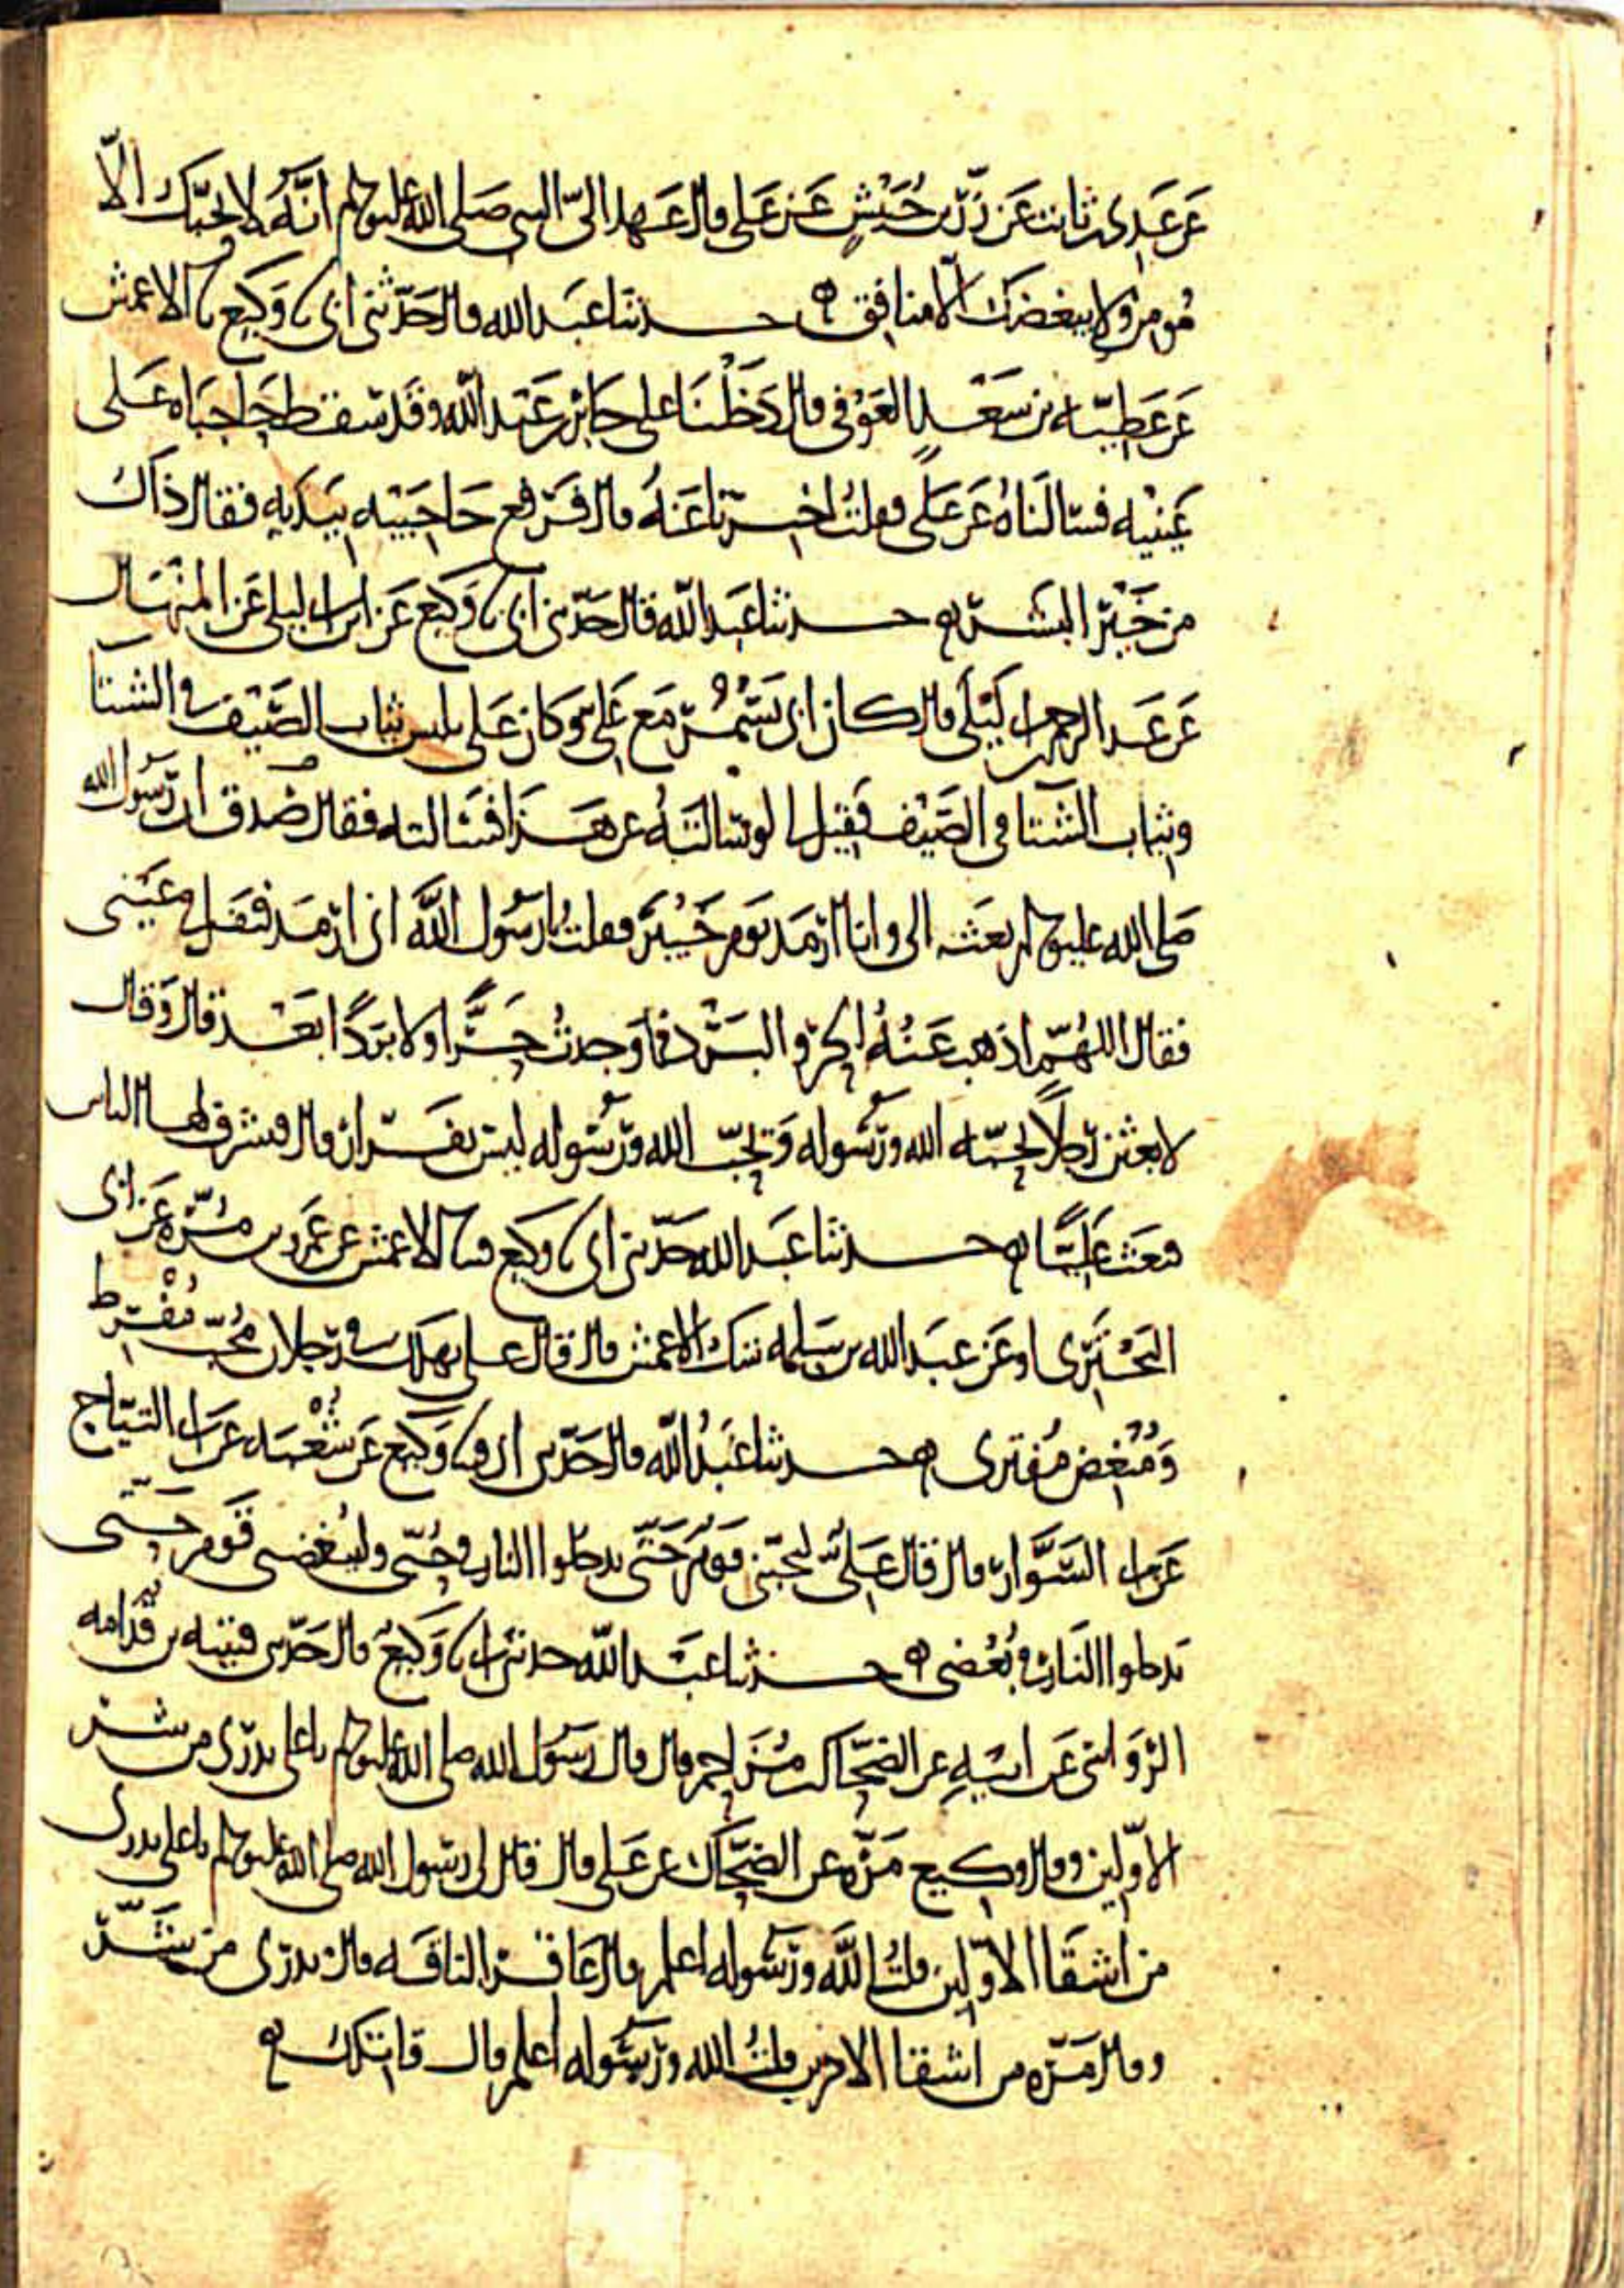 عن عدي بن ثابت عن زر بن حبيش عن علي قال عهد الي النبي صلى الله عليه وسلم انه لا يحبك الا
مومن ولا يبغضك الا منافق ه حدثنا عبد الله قال حدثني ابي نا وكيع نا الاعمش
عن عطية بن سعد العوفي قال دخلنا على جابر بن عبد الله وقد سقط حاجباه على
عينيه فسالناه عن علي فقلت اخبرنا عنه قال فرفع حاجبيه بيديه فقال ذاك
من خير البشر ه حدثنا عبد الله قال حدثني ابي نا وكيع عن ابن ابي ليلى عن المنهال
عن عبد الرحمن بن ابي ليلى قال كان ابي يسمر مع علي وكان علي يلبس ثياب الصيف في الشتا
وثياب الشتا في الصيف فقيل له لو سالته عن هذا فسالته فقال صدق ان رسول الله
صلى الله عليه وسلم بعث الي وانا ارمد يوم خيبر فقلت يا رسول الله اني ارمد فتفل في عيني
فقال اللهم اذهب عنه الحر والبرد فما وجدت حرا ولا بردا بعد قال وقال
لابعثن رجلا يحبه الله ورسوله ويحب الله ورسوله ليس بفرار قال فتشرف لها الناس
فبعث عليا ه حدثنا عبد الله حدثني ابي نا وكيع نا الاعمش عن عمرو بن مرة عن ابي
البختري او عن عبد الله بن سلمه شك الاعمش قال قال علي يهلك في رجلان محب مفرط
ومبغض مفتري ه حدثنا عبد الله قال حدثني ابي نا وكيع عن شعبه عن ابي التياح
عن ابي السوار قال قال علي ليحبني قوم حتى يدخلوا النار في حبي وليبغضني قوم حتى
يدخلوا النار في بغضي ه حدثنا عبد الله حدثني ابي نا وكيع قال حدثني قتيبه بن قدامه
الرواسي عن ابيه عن الضحاك بن مزاحم قال قال رسول الله صلى الله عليه وسلم يا علي تدري من شر
الاولين وقال وكيع مرة عن الضحاك عن علي قال قال لي رسول الله صلى الله عليه وسلم يا علي تدري
من اشقا الاولين قلت الله ورسوله اعلم قال عاقر الناقه قال تدري من شر
وقال مره من اشقا الاخرين قلت الله ورسوله اعلم قال قاتلك ه